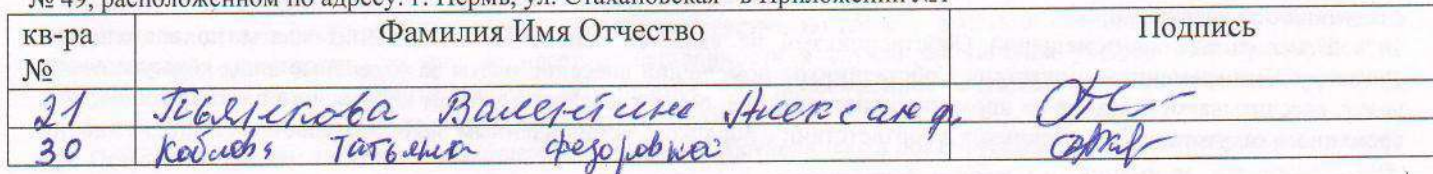 № 49, расположенном по адресу: г. Пермь, ул. Стахановская - в Приложении №1
кв-ра № Фамилия Имя Отчество Подпись
21 Пьянкова Валентина Александ.
30 Татьяна Федоровна